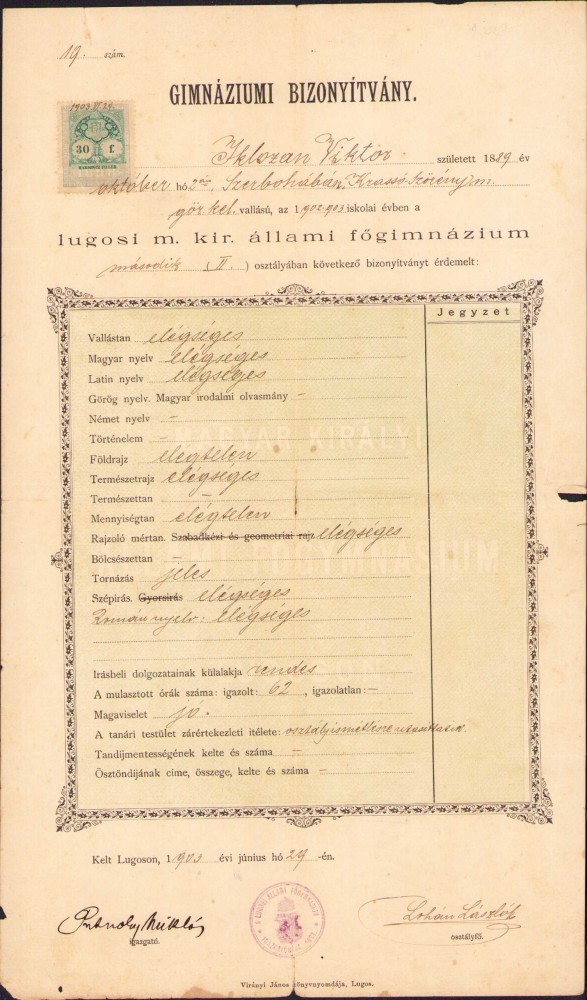 19. szám.
GIMNÁZIUMI BIZONYÍTVÁNY.
1903.VI.29.
30 f
Iklozan Viktor született 1889 év
október hó 2án Szerbohában, Krassó-Szörény m.
gör. kel. vallású, az 1902-903 iskolai évben a
lugosi m. kir. állami főgimnázium
második (II.) osztályában következő bizonyítványt érdemelt:
Jegyzet
Vallástan elégséges
Magyar nyelv elégséges
Latin nyelv elégséges
Görög nyelv. Magyar irodalmi olvasmány –
Német nyelv –
Történelem –
Földrajz elégtelen
Természetrajz elégséges
Természettan –
Mennyiségtan elégtelen
Rajzoló mértan. Szabadkézi és geometriai rajz elégséges
Bölcsészettan –
Tornázás jeles
Szépírás. Gyorsirás elégséges
Roman nyelv: elégséges
Irásbeli dolgozatainak külalakja rendes
A mulasztott órák száma: igazolt: 62, igazolatlan: –
Magaviselet jó.
A tanári testület zárértekezleti itélete: osztályismétlésre utasíttatik
Tandijmentességének kelte és száma –
Ösztöndijának címe, összege, kelte és száma –
MAGYAR KIRÁLYI
Kelt Lugoson, 1903 évi június hó 29-én.
Miklós
igazgató.
Lohán László
osztályfő.
Virányi János könyvnyomdája, Lugos.